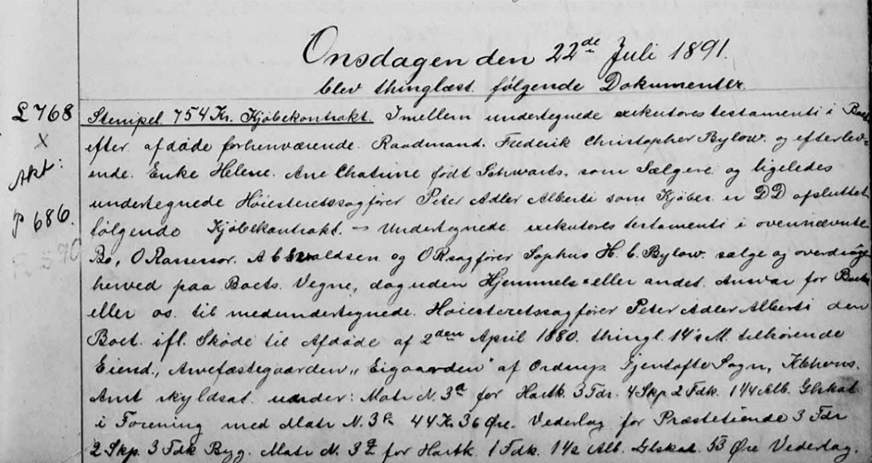 Onsdagen den 22de Juli 1891.
blev thinglæst følgende Dokumenter.
L 768
x
Akt:
P 686.
Stempel 754 Kr. Kjøbekontrakt. Imellem undertegnede exekutores testamenti i Boet
efter afdøde forhenværende Raadmand. Frederik Christopher Bylow. og efterlev-
ende. Enke Helene. Ane Chatrine født Schwarts. som Sælgere og ligeledes
undertegnede Høiesteretssagfører Peter Adler Alberti som Kjøber er DD afsluttet
følgende Kjøbekontrakt. — Undertegnede exekutores testamenti i ovennævnte
Bo, O Rassessor. A C Evaldsen og O Rsagfører Sophus H. C. Bylow. sælge og overdrage
herved paa Boets Vegne, dog uden Hjemmels= eller andet Ansvar for Boet
eller os. til medundertegnede. Høiesteretssagfører Peter Adler Alberti den
Boet. ifl. Skøde til Afdøde af 2den April 1880. thingl. 14' s. M. tilhørende
Eiend., Arvefæstegaarden "Eigaarden" af Ordrup. Gjentofte Sogn, Kbhvns.
Amt skyldsat. under: Matr N. 3a for Hartk. 3 Tdr. 4 Skp 2 Fdk. 1 1/4 Alb. Glskat
i Forening med Matr N. 44 Kr 36 Øre. Vederlag for Præstetiende 3 Tdr
2 Skp. 3 Fdk Byg. Matr N. for Hartk. 1 Fdk. 1 1/2 Alb. Glskat. 53 Øre Vederlag.